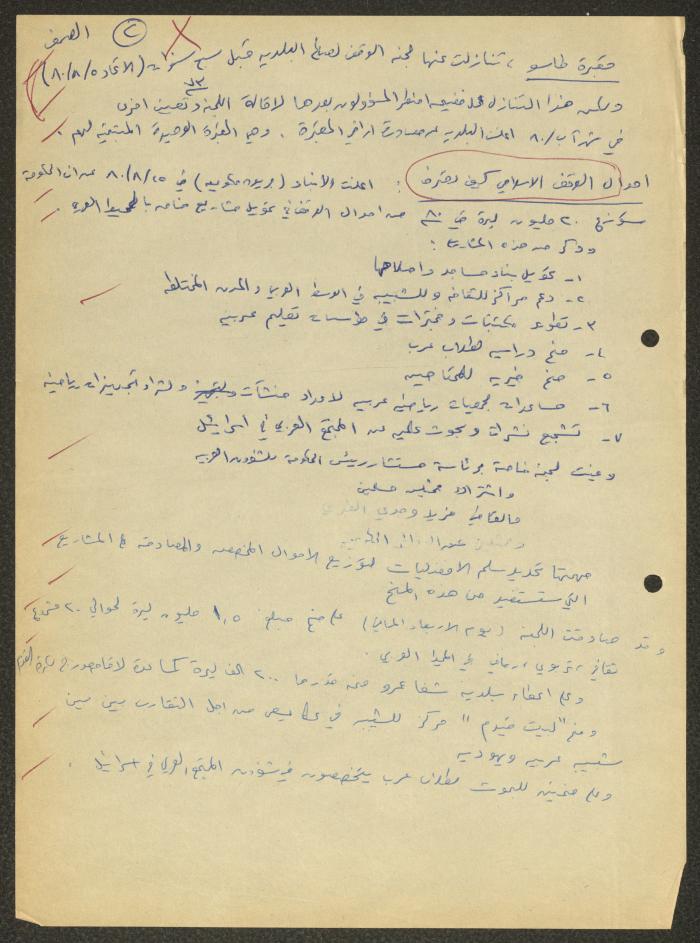 ② الصحف
مقبرة طاسو ، تنازلت عنها لجنة الوقف لصالح البلدية قبل سبع سنوات (الاتحاد ٥/ ٨/ ٨٠)
٧٣
ولكن هذا التنازل فضيحة اضطر المسؤولون بعدها لاقالة اللجنة وتعيين اخرى
في شهر آب/ ٨٠ اعلنت البلدية عن مصادرة اراضي المقبرة . وهي المقبرة الوحيدة المتبقية لهم .
اموال الوقف الاسلامي كيف تصرف : اعلنت الانباء (جريدة حكومية) في ٢٥/ ٨/ ٨٠ عن ان الحكومة
ستوزع ٢٠ مليون ليرة في ٨٠ من اموال الوقف في تمويل مشاريع خاصة بالوسط العربي .
وذكر من هذه المشاريع :
١- تمويل بناء مساجد واصلاحها
٢- دعم مراكز للثقافة وللشبيبة في الوسط العربي والمدن المختلطة
٣- تطوير مكتبات ومختبرات في مؤسسات تعليم عربية
٤- منح دراسية لطلاب عرب
٥- منح خيرية للمحتاجين
٦- مساعدات لجمعيات رياضية عربية لاعداد منشآت ولشراء تجهيزات رياضية
٧- تشجيع نشرات وبحوث علمية عن المجتمع العربي في اسرائيل
وعينت لجنة خاصة برئاسة مستشار رئيس الحكومة للشؤون العربية
واشتراك ممثلين مسلمين
مهمتها تحديد سلم الافضليات لتوزيع الاموال المخصصة والمصادقة على المشاريع
التي ستستفيد من هذه المنح
وقد صادقت اللجنة (يوم الاربعاء الماضي) على منح مبلغ ١,٥ مليون ليرة لحوالي ٢٠ مشروع
ثقافي ، تربوي ، رياضي في الوسط العربي .
وعلى اعطاء بلدية شفاعمرو منحة قدرها ٢٠٠ الف ليرة كمساعدة لاقامة
ومنح "بيت مركز للشبيبة في عكا من اجل التقارب بين
شبيبة عربية ويهودية
وعلى منحتين للبحوث لطلاب عرب يتخصصون في شؤون المجتمع العربي في اسرائيل .